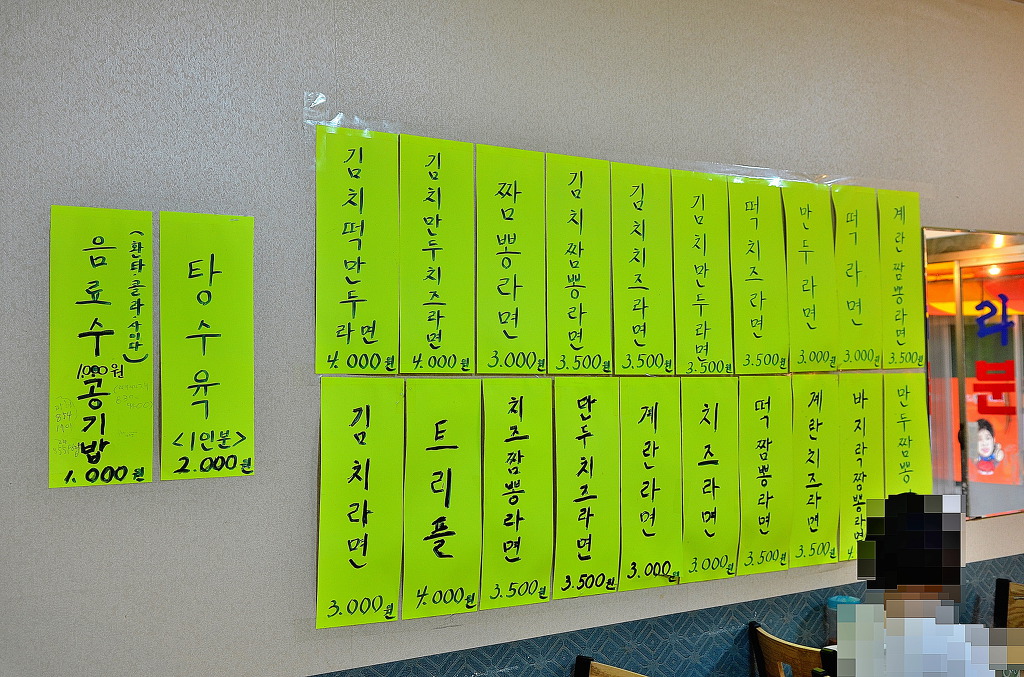 음료수
(환타·콜라·사이다)
1000원
공기밥
1.000원
탕수육
<1인분>
2.000원
김치떡만두라면
4.000원
김치만두치즈라면
4.000원
짬뽕라면
3.000원
김치짬뽕라면
3.500원
김치치즈라면
3.500원
김치만두라면
3.500원
떡치즈라면
3.500원
만두라면
3.000원
떡라면
3.000원
계란짬뽕라면
3.500원
김치라면
3.000원
트리플
4.000원
치즈짬뽕라면
3.500원
만두치즈라면
3.500원
계란라면
3.000원
치즈라면
3.000원
떡짬뽕라면
3.500원
계란치즈라면
3.500원
바지락짬뽕라면
만두짬뽕
라
분